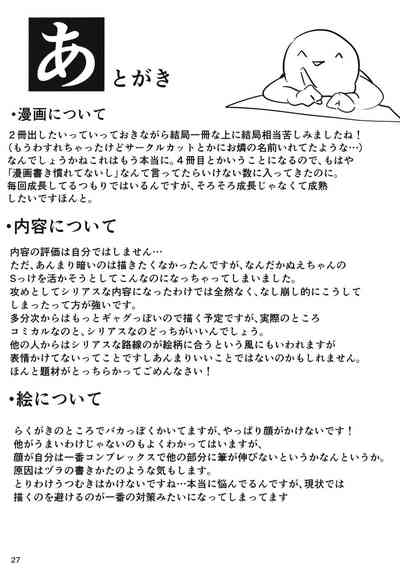 あとがき
・漫画について
２冊出したいっていっておきながら結局一冊な上に結局相当苦しみましたね！
（もうわすれちゃったけどサークルカットとかにお燐の名前いれてたような…）
なんでしょうかねこれはもう本当に。４冊目とかいうことになるので、もはや
「漫画書き慣れてないし」なんて言ってたらいけない数に入ってきたのに。
毎回成長してるつもりではいるんですが、そろそろ成長じゃなくて成熟
したいですほんと。
・内容について
内容の評価は自分ではしません…
ただ、あんまり暗いのは描きたくなかったんですが、なんだかぬえちゃんの
Sっけを活かそうとしてこんなのになっちゃってしまいました。
攻めとしてシリアスな内容になったわけでは全然なく、なし崩し的にこうして
しまったって方が強いです。
多分次からはもっとギャグっぽいので描く予定ですが、実際のところ
コミカルなのと、シリアスなのどっちがいいんでしょう。
他の人からはシリアスな路線のが絵柄に合うという風にもいわれますが
表情かけてないってことですしあんまりいいことではないのかもしれません。
ほんと題材がとっちらかっててごめんなさい！
・絵について
らくがきのところでバカっぽくかいてますが、やっぱり顔がかけないです！
他がうまいわけじゃないのもよくわかってはいますが、
顔が自分は一番コンプレックスで他の部分に筆が伸びないというかなんというか。
原因はヅラの書きかたのような気もします。
とりわけうつむきはかけないですね…本当に悩んでるんですが、現状では
描くのを避けるのが一番の対策みたいになってしまってます
27